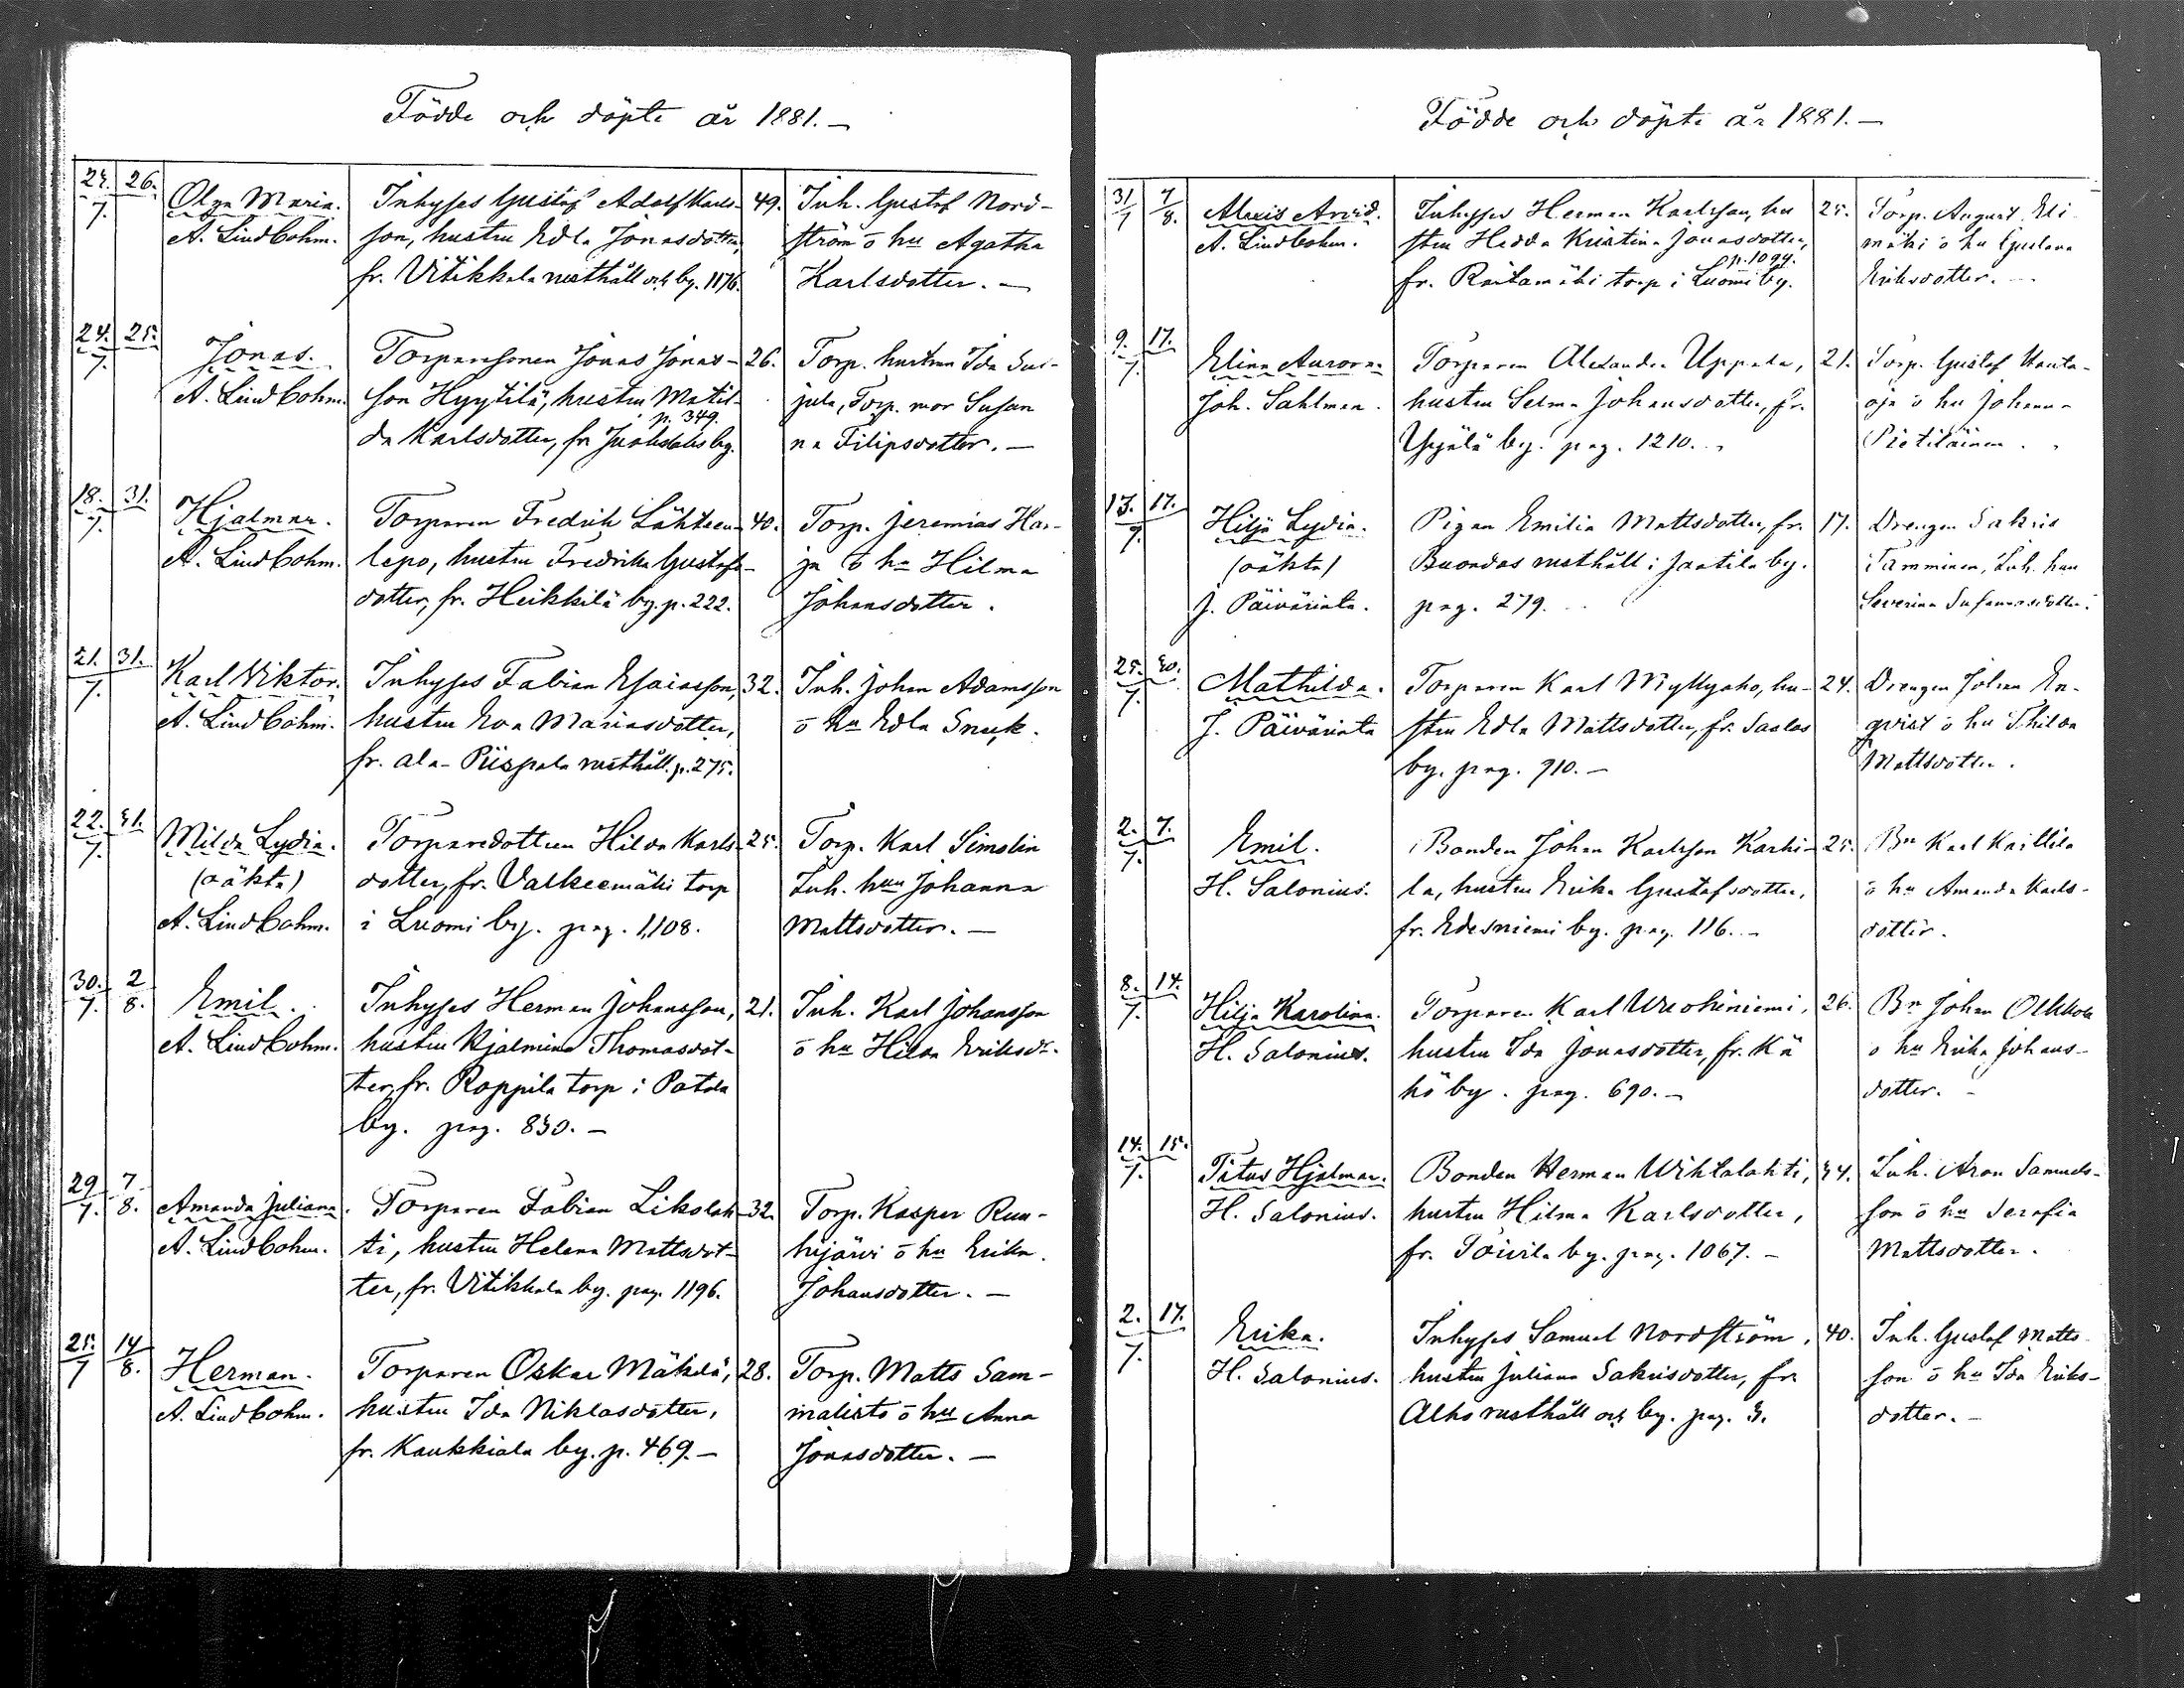 Födde och döpte år 1881. —
24. 26.
7.
Olga Maria.
A. Lindbohm.
Inhyses Gustaf Adolf Karls-
son, hustru Edla Jonasdotter,
fr. Vitikkala rusthåll och by. 1176.
49.
Inh. Gustaf Nord-
ström o hu Agatha
Karlsdotter. —
24. 25.
7.
Jonas.
A. Lindbohm.
Torparesonen Jonas Jonas-
son Hyytilä, hustru Matil-
p. 349.
da Karlsdotter, fr by.
26.
Torp. hustrun Ida Sus-
jula, Torp. mor Susan
na Filipsdotter. —
18. 31.
7.
Hjalmar.
A. Lindbohm.
Torparen Fredrik Lähteen-
lepo, hustru Fredrika Gustafs-
dotter, fr. Heikkilä by. p. 222.
40.
Torp. Jeremias Har-
ju o hu Hilma
Johansdotter.
21. 31.
7.
Karl Viktor.
A. Lindbohm.
Inhyses Fabian Esaiasson,
hustru Eva Mariasdotter,
fr. Ala-Piispala rusthåll. p. 275.
32.
Inh. Johan Adamsson
o hu Edla Snuk.
22. 31.
7.
Milda Lydia.
(oäkta)
A. Lindbohm.
Torparedottren Hilda Karls-
dotter, fr. Valkeemäki torp
i Luomi by. pag. 1,108.
25.
Torp. Karl Simolin
Inh. hun Johanna
Mattsdotter. —
30. 2
7. 8.
Emil.
A. Lindbohm.
Inhyses Herman Johansson,
hustru Hjalmina Thomasdot-
ter, fr. Roppila torp i Patola
by. pag. 830. —
21.
Inh. Karl Johansson
o hu Hilda Eriksdr.
29 7
7. 8.
Amanda Juliana.
A. Lindbohm.
Torparen Fabian Likolah-
ti, hustru Helena Mattsdot-
ter, fr. Vitikkala by. pag. 1196.
32.
Torp. Kasper Ruu-
hijärvi o hu Erika
Johansdotter. —
25. 14
7 8.
Herman.
A. Lindbohm.
Torparen Oskar Mäkelä,
hustru Ida Niklasdotter,
fr. Kaukkiala by. p. 469. —
28.
Torp. Matts Sam-
malisto o hu Anna
Jonasdotter. —
Födde och döpte år 1881. —
31 7
7 8.
Alexis Arvid.
A. Lindbohm.
Inhyses Herman Karlsson, hu
stru Hedda Kristina Jonasdotter,
p. 1094.
fr. Raitamäki torp i Luomi by.
25.
Torp. August Eli
mäki o hu Gustava
Eriksdotter. —
9. 17.
7.
Elina Aurora.
Joh. Sahlman.
Torparen Alexander Uppala,
hustru Selma Johansdotter, fr.
Yrjälä by. pag. 1210.
21.
Torp. Gustaf Hauta-
oja o hu Johanna
Pietiläinen.
13. 17.
7.
Hilja Lydia.
(oäkta)
J. Päivärinta.
Pigan Emilia Mattsdotter, fr.
Buondas rusthåll i Jaatila by.
pag. 279.
17.
Drengen Sakris
Tamminen, Inh. hun
Severina
25. 30.
7.
Mathilda.
J. Päivärinta
Torparen Karl Myllyaho, hu-
stru Edla Mattsdotter, fr. Saalas
by. pag. 910. —
24.
Drengen Johan En-
qvist o hu Thilda
Mattsdotter.
2. 7.
7.
Emil.
H. Salonius.
Bonden Johan Karlsson Karhi-
la, hustru Erika Gustafsdotter,
fr. Edesniemi by. pag. 116. —
25.
Bn Karl Kaillila
o hu Amanda Karls-
dotter.
8. 14.
7.
Hilja Karolina.
H. Salonius.
Torparen Karl Wuohiniemi,
hustru Ida Jonasdotter, fr. Kä
hö by. pag. 690. —
26.
Bn Johan Olkkola
o hu Erika Johans-
dotter. —
14. 15.
7.
Titus Hjalmar.
H. Salonius.
Bonden Herman Wihlalahti,
hustru Hilma Karlsdotter,
fr. Toivila by. pag. 1067. —
34.
Inh. Aron Samuels-
son o hu Serafia
Mattsdotter.
2. 17.
7.
Erika.
H. Salonius.
Inhyses Samuel Nordström,
hustru Juliana Sakrisdotter, fr
Alho rusthåll och by. pag. 3.
40.
Inh. Gustaf Matts-
son o hu Ida Eriks-
dotter. —